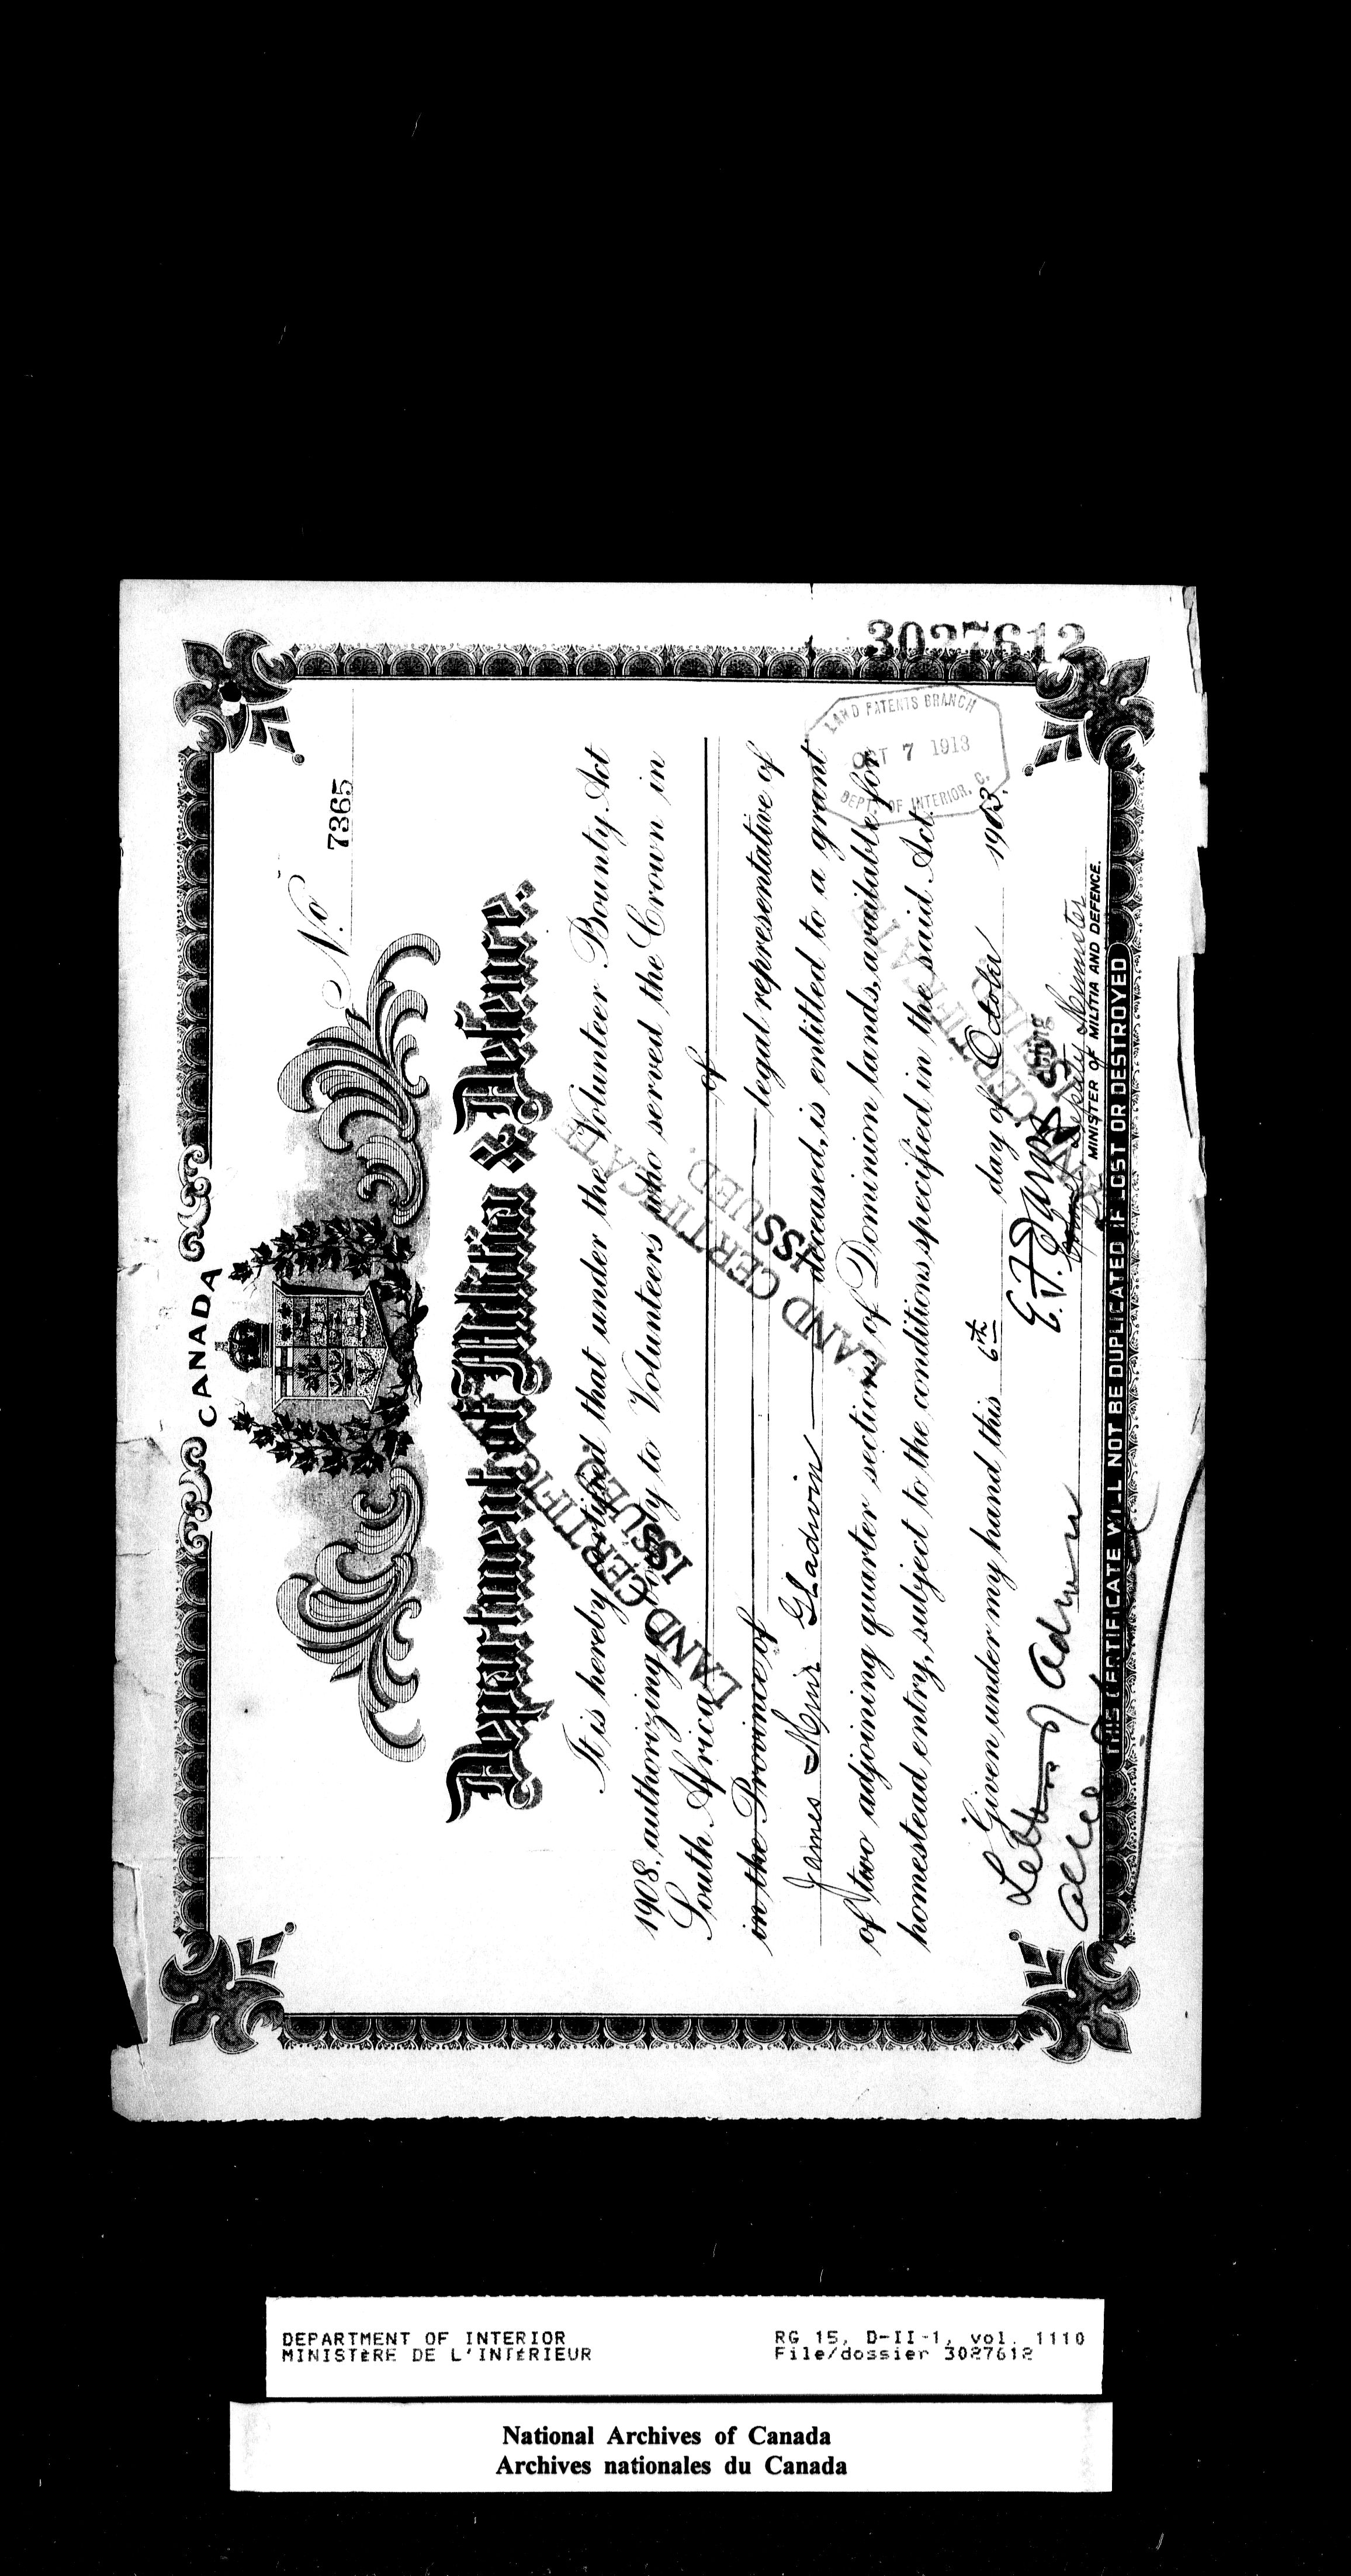 3027612
CANADA
No. 7365
Department of Militia & Defence.
It is hereby certified that under the Volunteer Bounty Act
1908, authorizing bounty to Volunteers who served the Crown in
South Africa of
in the Province of legal representative of
James Gladwin deceased, is entitled to a grant
of two adjoining quarter sections of Dominion lands, available for
homestead entry, subject to the conditions specified in the said Act.
Given under my hand this 6th day of October 1913.
LAND PATENTS BRANCH
OCT 7 1913
DEPT. OF INTERIOR, C.
LAND CERTIFICATE
ISSUED.
LAND CERTIFICATE
ISSUED.
LAND CERTIFICATE
ISSUED.
Acting Deputy Minister
MINISTER OF MILITIA AND DEFENCE.
Letters of Admn
THIS CERTIFICATE WILL NOT BE DUPLICATED IF LOST OR DESTROYED
DEPARTMENT OF INTERIOR
MINISTÈRE DE L'INTÉRIEUR
RG 15, D-II-1, vol. 1110
File/dossier 3027612
National Archives of Canada
Archives nationales du Canada